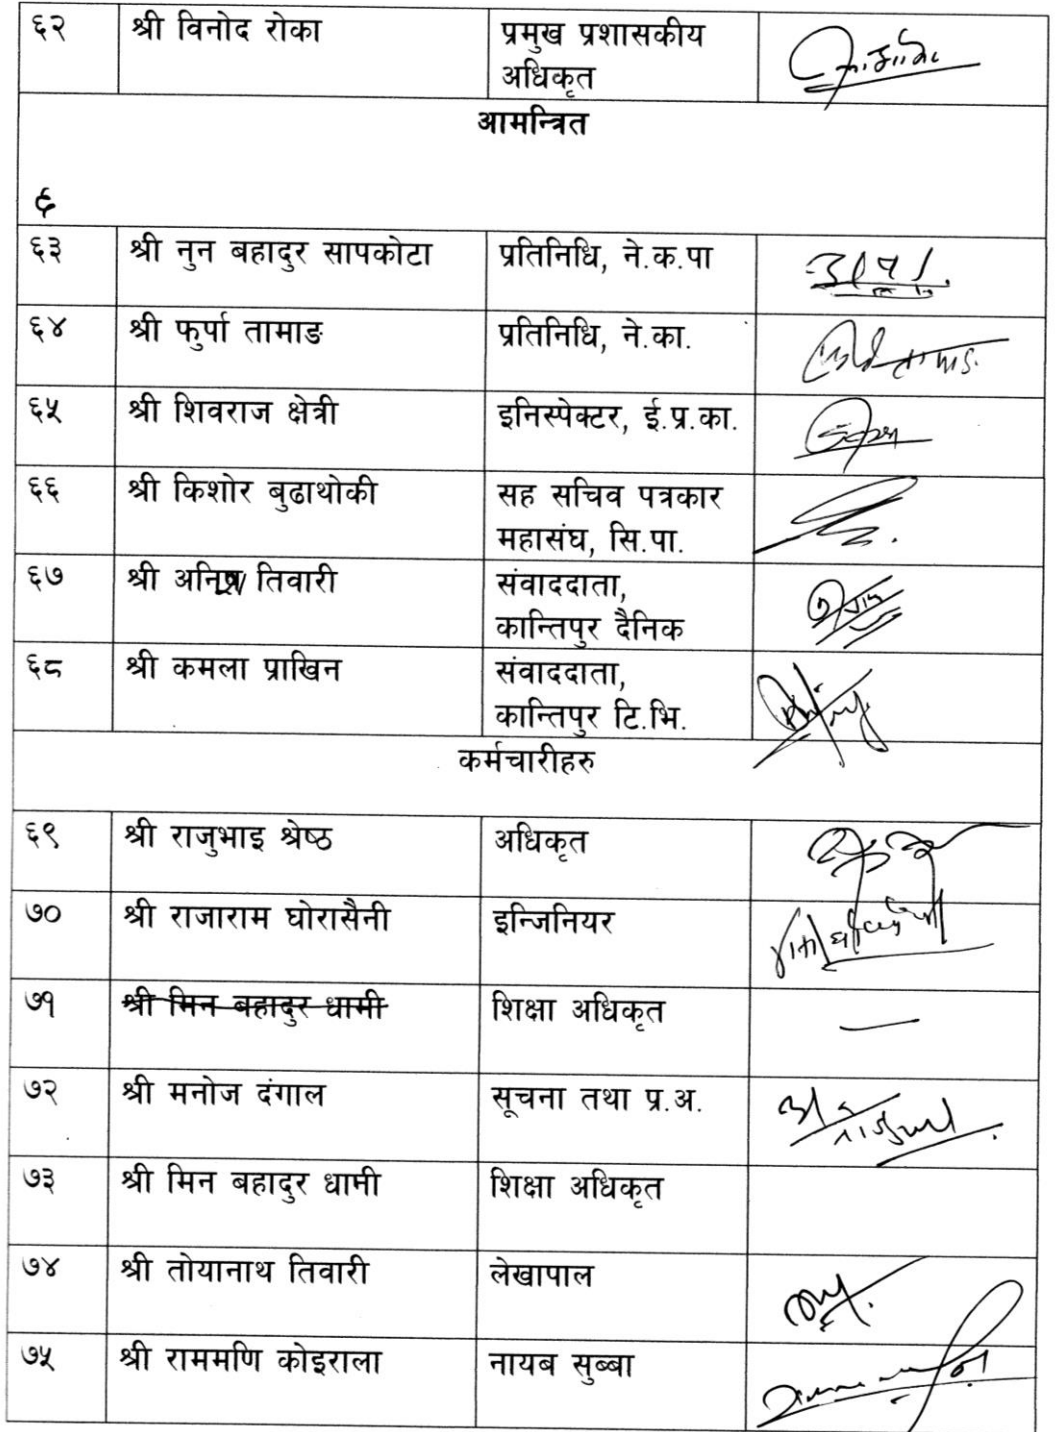 ६२ श्री विनोद रोका प्रमुख प्रशासकीय
अधिकृत
आमन्त्रित
६
६३ श्री नुन बहादुर सापकोटा प्रतिनिधि, ने.क.पा
६४ श्री फुर्पा तामाङ प्रतिनिधि, ने.का.
६५ श्री शिवराज क्षेत्री इनिस्पेक्टर, ई.प्र.का.
६६ श्री किशोर बुढाथोकी सह सचिव पत्रकार
महासंघ, सि.पा.
६७ श्री तिवारी संवाददाता,
कान्तिपुर दैनिक
६८ श्री कमला प्राखिन संवाददाता,
कान्तिपुर टि.भि.
कर्मचारीहरु
६९ श्री राजुभाइ श्रेष्ठ अधिकृत
७० श्री राजाराम घोरासैनी इन्जिनियर
७१ श्री मिन बहादुर धामी शिक्षा अधिकृत —
७२ श्री मनोज दंगाल सूचना तथा प्र.अ.
७३ श्री मिन बहादुर धामी शिक्षा अधिकृत
७४ श्री तोयानाथ तिवारी लेखापाल
७५ श्री राममणि कोइराला नायब सुब्बा